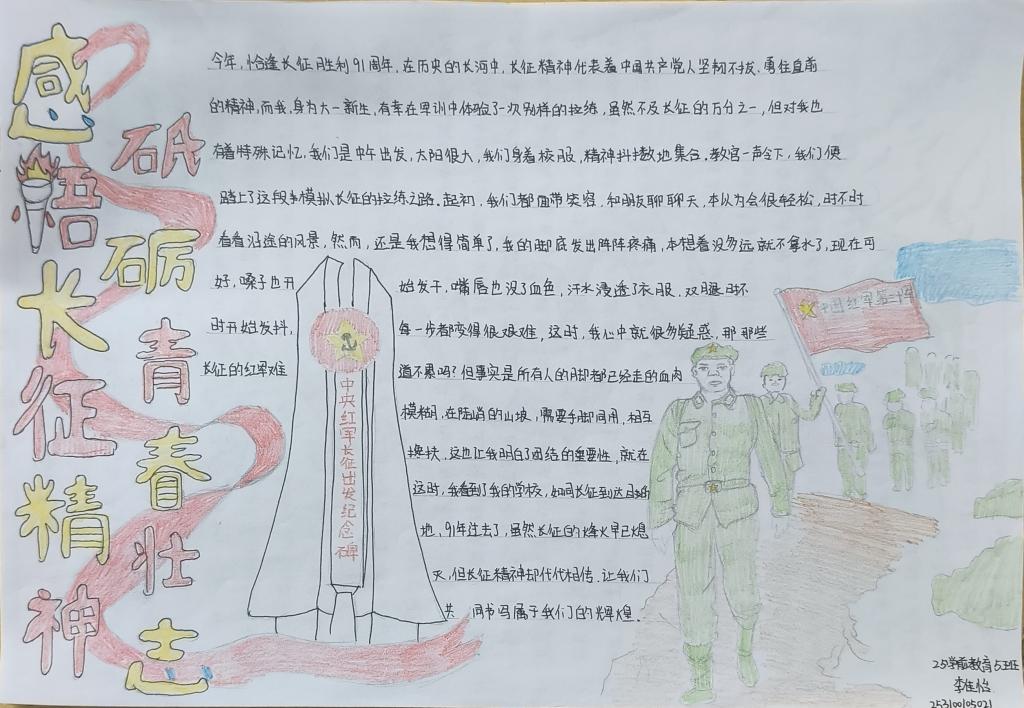 感悟长征精神
砥砺青春壮志
今年，恰逢长征胜利91周年，在历史的长河中，长征精神代表着中国共产党人坚韧不拔、勇往直前
的精神，而我，身为大一新生，有幸在军训中体验了一次别样的拉练，虽然不及长征的万分之一，但对我也
有着特殊记忆，我们是中午出发，太阳很大，我们身着校服，精神抖擞地集合。教官一声令下，我们便
踏上了这段模拟长征的拉练之路。起初，我们都面带笑容，和朋友聊聊天，本以为会很轻松，时不时
看看沿途的风景，然而，还是我想得简单了，我的脚底发出阵阵疼痛，本想着没多远就不拿水了，现在可
好，嗓子也开始发干，嘴唇也没了血色，汗水浸透了衣服，双腿时不
时开始发抖，每一步都变得很艰难，这时，我心中就很多疑惑，那那些
长征的红军难道不累吗？但事实是所有人的脚都已经走的血肉
模糊，在陡峭的山坡，需要手脚同用，相互
搀扶，这也让我明白了团结的重要性，就在
这时，我看到了我的学校，如同长征到达目的
地，91年过去了，虽然长征的烽火早已熄
灭，但长征精神却代代相传，让我们
共同书写属于我们的辉煌。
中央红军长征出发纪念碑
中国红军第二十军
25学前教育5班
李佳怡
253100105021